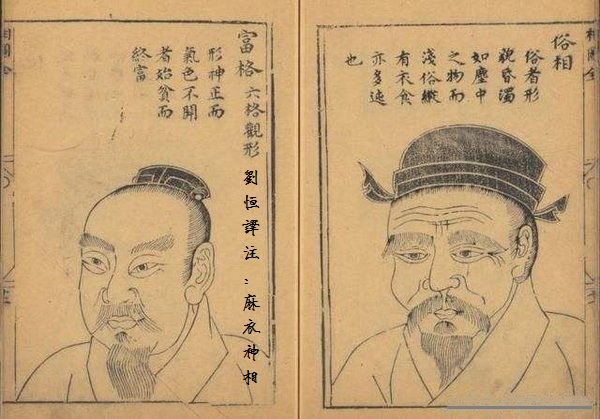 俗相
俗者形
貌昏濁
如塵中
之物而
淺俗縱
有衣食
亦多迍
也
富格 六格觀形
形神正而
氣色不開
者始貧而
終富
劉恒譯注：麻衣神相